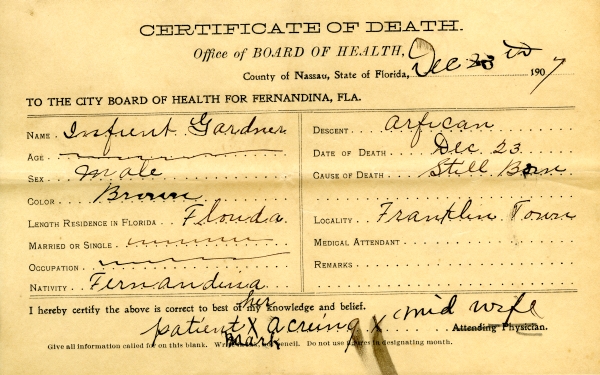 CERTIFICATE OF DEATH.
Office of BOARD OF HEALTH, Dec 23
County of Nassau, State of Florida, 1907
TO THE CITY BOARD OF HEALTH FOR FERNANDINA, FLA.
NAME Infient Gardner
AGE
SEX Male
COLOR Brown
LENGTH RESIDENCE IN FLORIDA Florida
MARRIED OR SINGLE
OCCUPATION
NATIVITY Fernandina
DESCENT Arfican
DATE OF DEATH Dec 23
CAUSE OF DEATH Still Born
LOCALITY Franklin Town
MEDICAL ATTENDANT
REMARKS
I hereby certify the above is correct to best of my knowledge and belief.
her
patient X X mid wife
mark
Attending Physician.
Give all information called for on this blank. Write in ink, not pencil. Do not use figures in designating month.